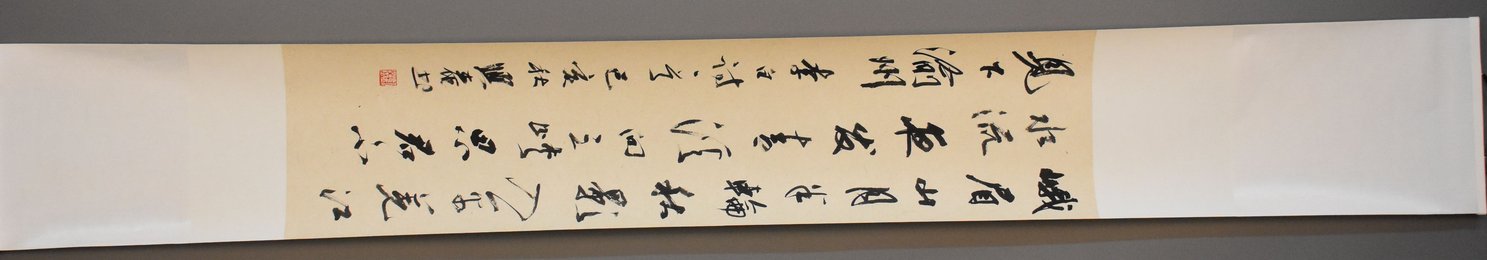 峨眉山月半輪秋影入平羌江
水流夜發清溪向三峽思君不
見下渝州 李白詩